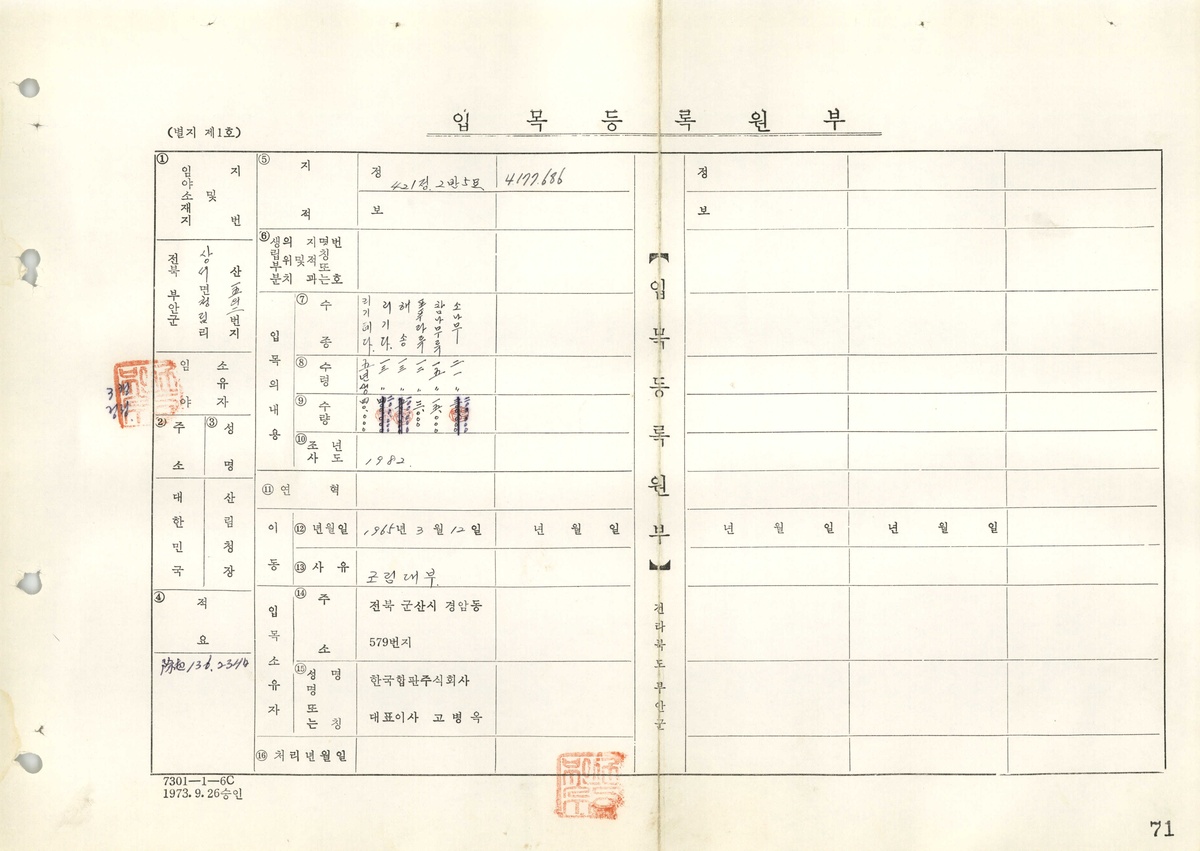 입목등록원부
(별지 제1호)
① 임야소재지 및 지번
전북 부안군
상서면청림리
산 번지
임야 소유자
② 주소
③ 성명
대한민국
산림청장
④ 적요
⑤ 지적
정 421정.2반5묘 4177.686
보
⑥ 생립부분의 위치 및 지적과 명칭 또는 번호
입목의 내용
⑦ 수종
리기테다. 리기다. 해송 포푸라류 참나무류 소나무
⑧ 수령
五년생
⑨ 수량
⑩ 조사년도
1982.
⑪ 연혁
이동
⑫ 년월일
1965년 3월 12일
년 월 일
⑬ 사유
조림대부.
입목소유자
⑭ 주소
전북 군산시 경암동
579번지
⑮ 성명 또는 명칭
한국합판주식회사
대표이사 고병옥
⑯ 처리년월일
7301—1—6C
1973.9.26승인
【입목등록원부】
전라북도 부안군
정
보
년 월 일
년 월 일
71